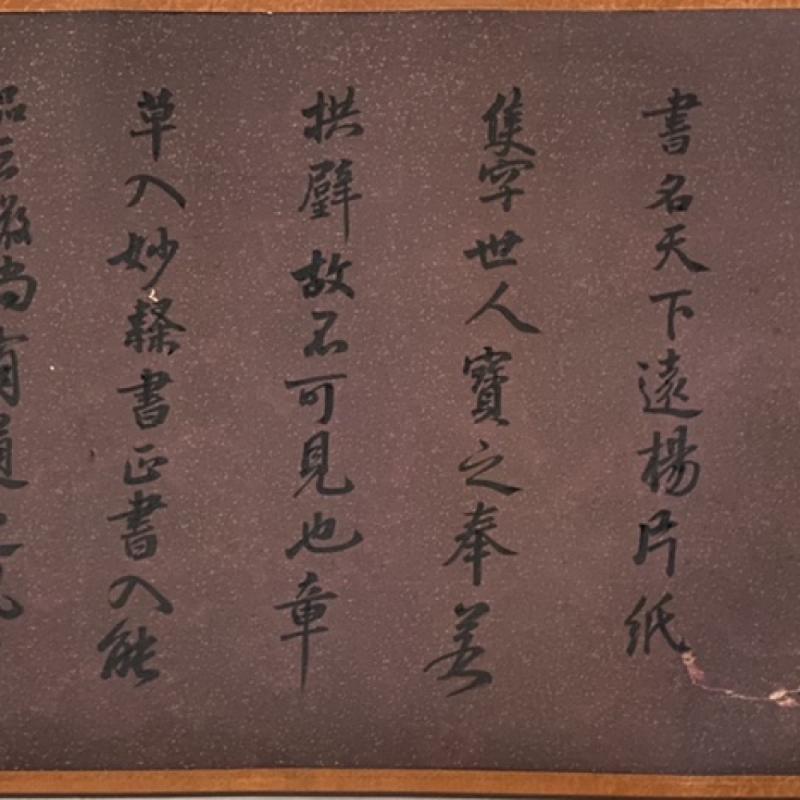 書名天下遠楊片紙
隻字世人寶之奉若
拱璧故不可見也章
草入妙隸書正書入能
品 尚有